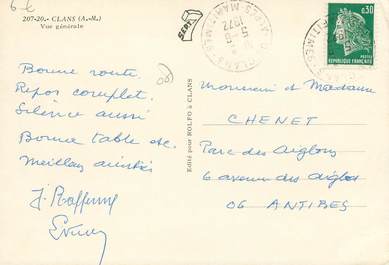 207-20.- CLANS (A.-M.)
Vue générale
Bonne route.
Repos complet.
Silence aussi
Bonne table etc.
Meilleures amitiés
SEPT
Edité pour ROLFO à CLANS
0,30
REPUBLIQUE FRANÇAISE
monsieur et Madame
CHENET
Parc des Aiglons
6 avenue des aiglons
06 ANTIBES